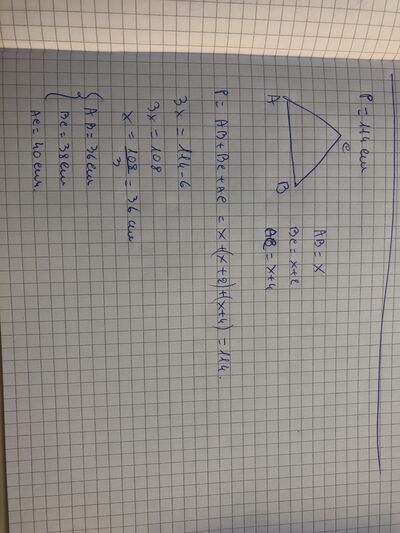 P = 114 cm
C
A
B
AB = x
BC = x+2
AC = x+4
P = AB + BC + AC = x + (x+2) + (x+4) = 114.
3x = 114 - 6
3x = 108
x = 108/3 = 36 cm
AB = 36 cm
BC = 38 cm
AC = 40 cm.